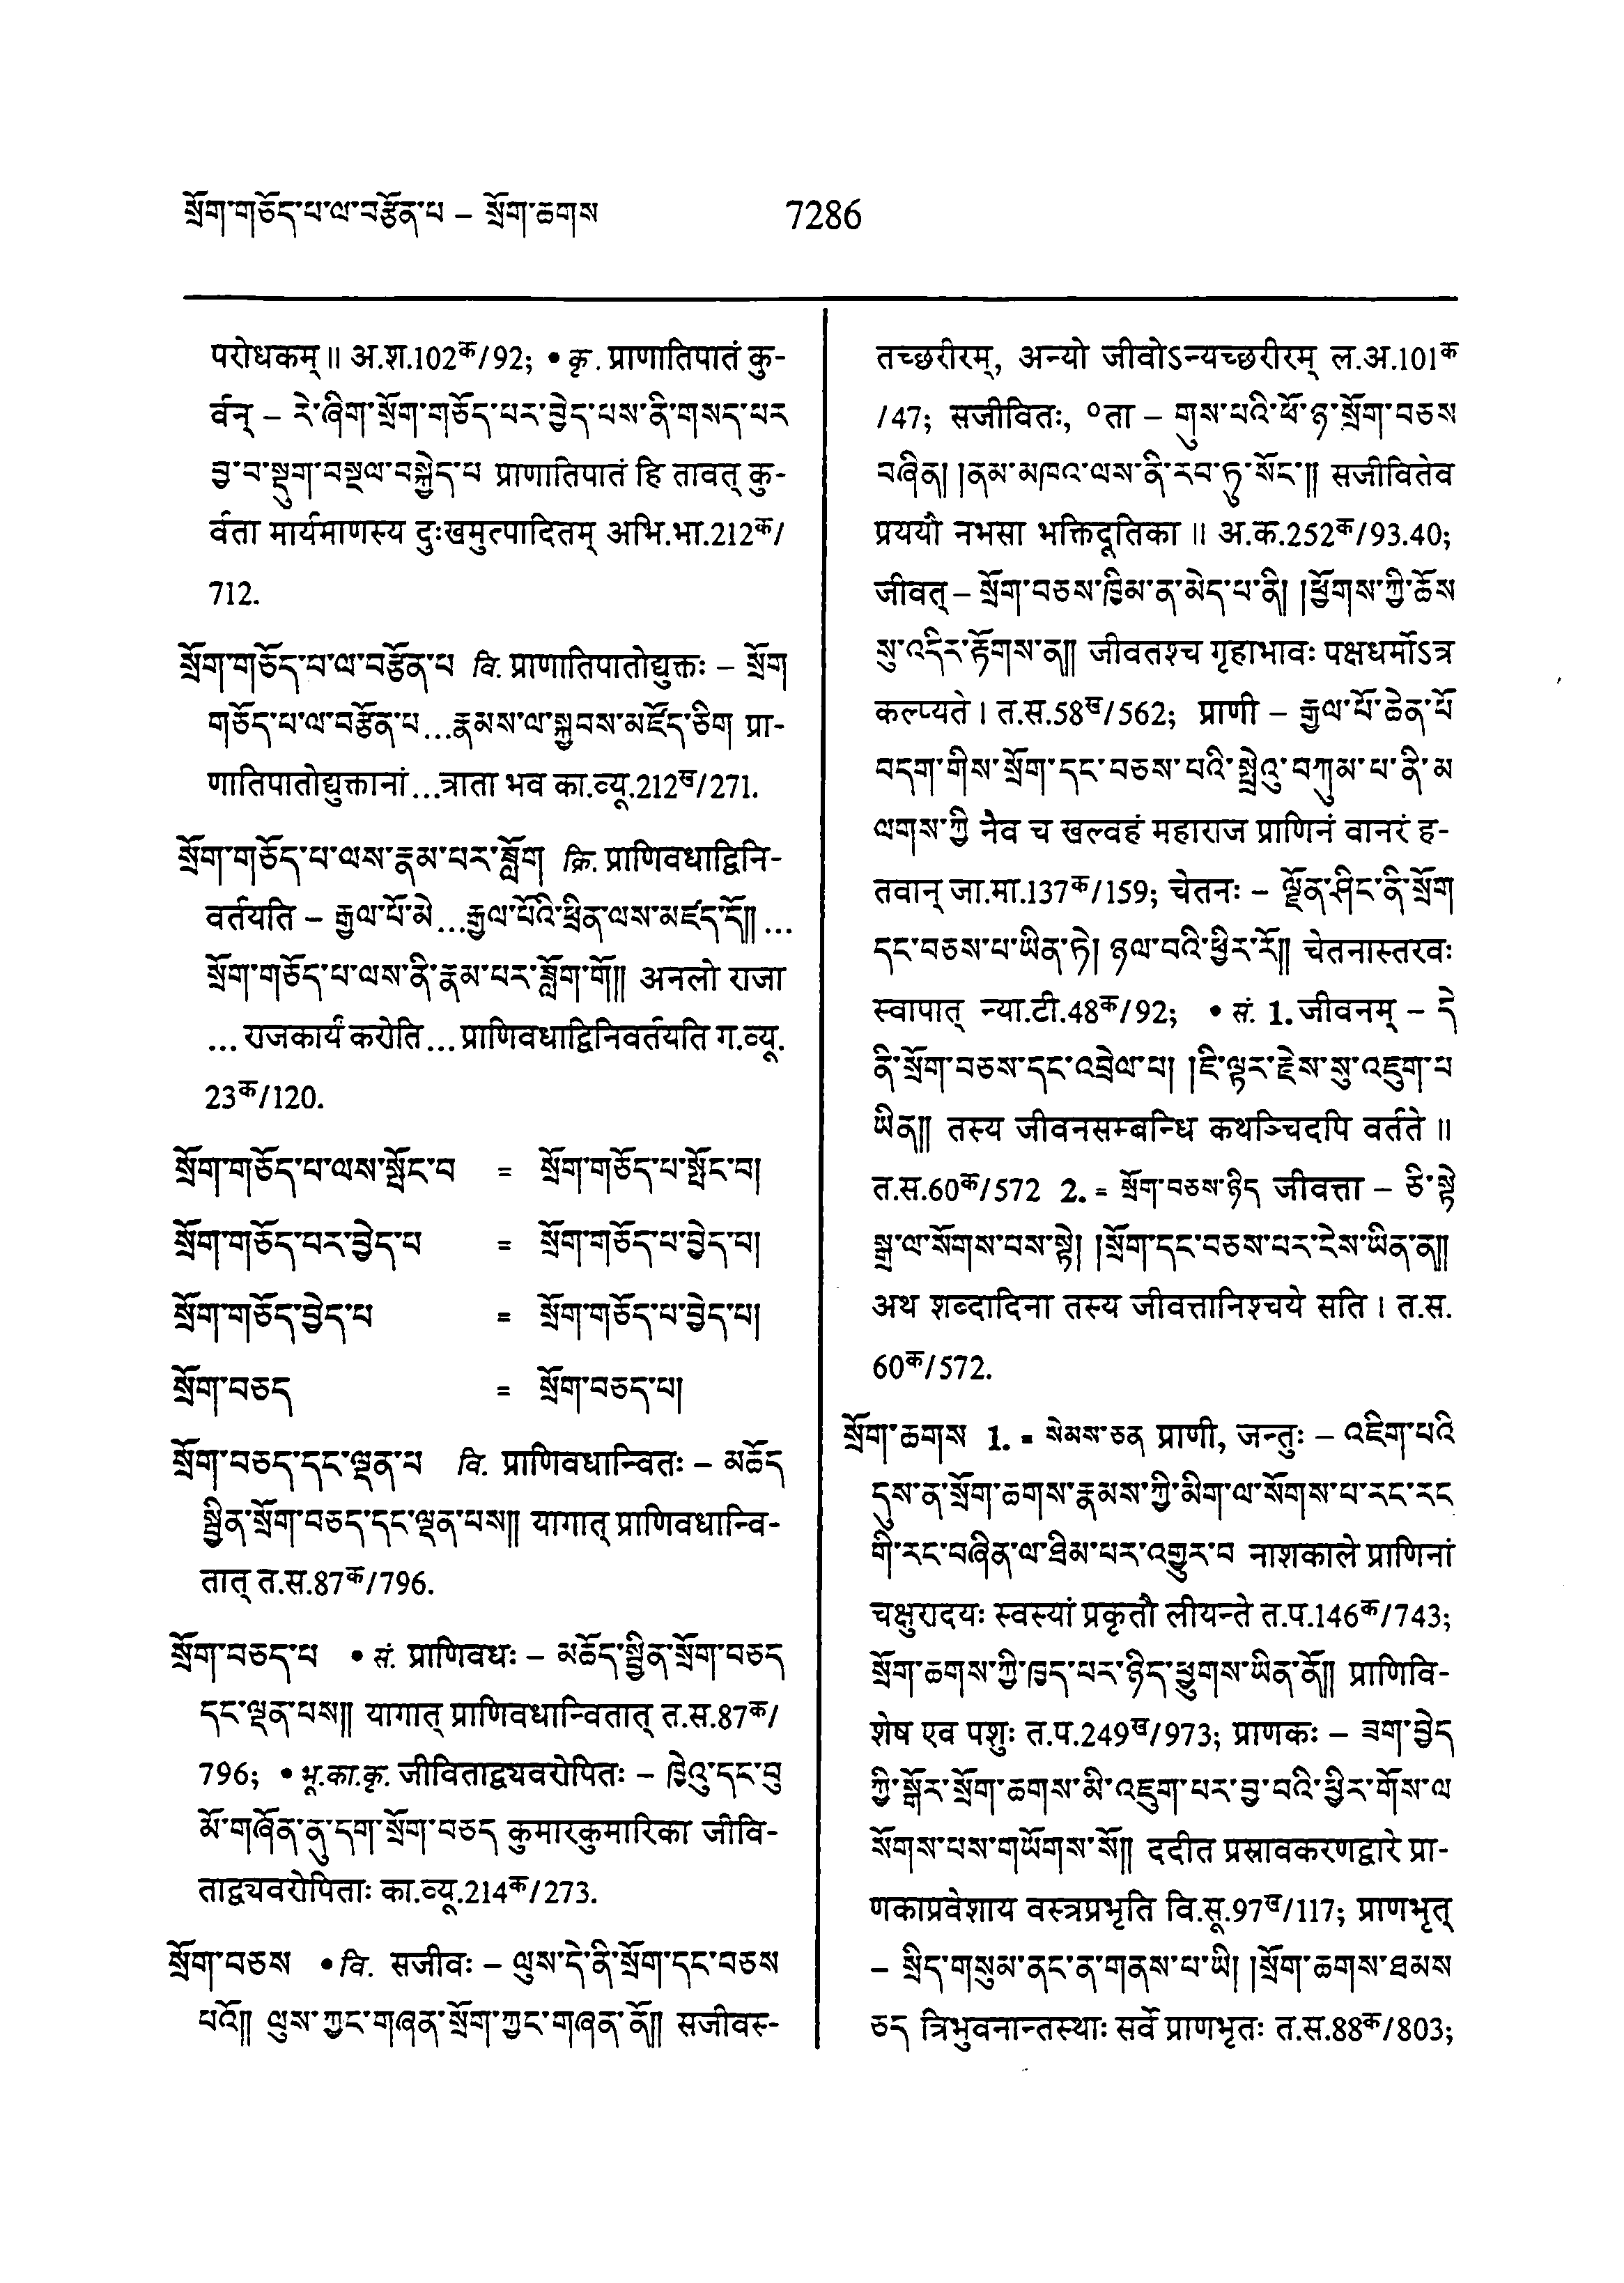 སྲོག་གཅོད་པ་ལ་བརྩོན་པ – སྲོག་ཆགས
7286
परोधकम् ॥ अ.श.102क/92; • कृ. प्राणातिपातं कु-
र्वन् – རེ་ཞིག་སྲོག་གཅོད་པར་བྱེད་པས་ནི་གསད་པར
བྱ་བ་སྡུག་བསྔལ་བསྐྱེད་པ प्राणातिपातं हि तावत् कु-
र्वता मार्यमाणस्य दुःखमुत्पादितम् अभि.भा.212क/
712.
སྲོག་གཅོད་པ་ལ་བརྩོན་པ वि. प्राणातिपातोद्युक्तः – སྲོག
གཅོད་པ་ལ་བརྩོན་པ...རྣམས་ལ་སྐྱབས་མཛོད་ཅིག प्रा-
णातिपातोद्युक्तानां...त्राता भव का.व्यू.212ख/271.
སྲོག་གཅོད་པ་ལས་རྣམ་པར་བློག क्रि. प्राणिवधाद्विनि-
वर्तयति – རྒྱལ་པོ་མེ...རྒྱལ་པོའི་ཕྲིན་ལས་མཛད་དོ༎...
སྲོག་གཅོད་པ་ལས་ནི་རྣམ་པར་བློག་གོ༎ अनलो राजा
... राजकार्यं करोति... प्राणिवधाद्विनिवर्तयति ग.व्यू.
23क/120.
སྲོག་གཅོད་པ་ལས་སྤོང་བ = སྲོག་གཅོད་པ་སྤོང་བ།
སྲོག་གཅོད་པར་བྱེད་པ = སྲོག་གཅོད་པ་བྱེད་པ།
སྲོག་གཅོད་བྱེད་པ = སྲོག་གཅོད་པ་བྱེད་པ།
སྲོག་བཅད = སྲོག་བཅད་པ།
སྲོག་བཅད་དང་ལྡན་པ वि. प्राणिवधान्वितः – མཆོད
སྦྱིན་སྲོག་བཅད་དང་ལྡན་པས༎ यागात् प्राणिवधान्वि-
तात् त.स.87क/796.
སྲོག་བཅད་པ • सं. प्राणिवधः – མཆོད་སྦྱིན་སྲོག་བཅད
དང་ལྡན་པས༎ यागात् प्राणिवधान्वितात् त.स.87क/
796; • भू.का.कृ. जीविताद्व्यवरोपितः – ཁྱེའུ་དང་བུ
མོ་གཞོན་ནུ་དག་སྲོག་བཅད कुमारकुमारिका जीवि-
ताद्व्यवरोपिताः का.व्यू.214क/273.
སྲོག་བཅས • वि. सजीवः – ལུས་དེ་ནི་སྲོག་དང་བཅས
པའོ༎ ལུས་ཀྱང་གཞན་སྲོག་ཀྱང་གཞན་ནོ༎ सजीवस्-
तच्छरीरम्, अन्यो जीवोऽन्यच्छरीरम् ल.अ.101क
/47; सजीवितः, ०ता – གུས་པའི་ཕོ་ཉ་སྲོག་བཅས
བཞིན། །ནམ་མཁའ་ལས་ནི་རབ་ཏུ་སོང་༎ सजीवितेव
प्रययौ नभसा भक्तिदूतिका ॥ अ.क.252क/93.40;
जीवत् – སྲོག་བཅས་ཁྱིམ་ན་མེད་པ་ནི། །ཕྱོགས་ཀྱི་ཆོས
སུ་འདིར་རྟོགས་ན༎ जीवतश्च गृहाभावः पक्षधर्मोऽत्र
कल्प्यते । त.स.58ख/562; प्राणी – རྒྱལ་པོ་ཆེན་པོ
བདག་གིས་སྲོག་དང་བཅས་པའི་སྤྲེའུ་བཀུམ་པ་ནི་མ
ལགས་ཀྱི नैव च खल्वहं महाराज प्राणिनं वानरं ह-
तवान् जा.मा.137क/159; चेतनः – ལྗོན་ཤིང་ནི་སྲོག
དང་བཅས་པ་ཡིན་ཏེ། ཉལ་བའི་ཕྱིར་རོ༎ चेतनास्तरवः
स्वापात् न्या.टी.48क/92; • सं. 1. जीवनम् – དེ
ནི་སྲོག་བཅས་དང་འབྲེལ་པ། །ཇི་ལྟར་རྗེས་སུ་འཇུག་པ
ཡིན༎ तस्य जीवनसम्बन्धि कथञ्चिदपि वर्तते ॥
त.स.60क/572 2. = སྲོག་བཅས་ཉིད जीवत्ता – ཅི་སྟེ
སྒྲ་ལ་སོགས་པས་སྟེ། །སྲོག་དང་བཅས་པར་ངེས་ཡིན་ན༎
अथ शब्दादिना तस्य जीवत्तानिश्चये सति । त.स.
60क/572.
སྲོག་ཆགས 1. = སེམས་ཅན प्राणी, जन्तुः – འཇིག་པའི
དུས་ན་སྲོག་ཆགས་རྣམས་ཀྱི་མིག་ལ་སོགས་པ་རང་རང
གི་རང་བཞིན་ལ་ཐིམ་པར་འགྱུར་བ नाशकाले प्राणिनां
चक्षुरादयः स्वस्यां प्रकृतौ लीयन्ते त.प.146क/743;
སྲོག་ཆགས་ཀྱི་ཁྱད་པར་ཉིད་ཕྱུགས་ཡིན་ནོ༎ प्राणिवि-
शेष एव पशुः त.प.249ख/973; प्राणकः – ཟག་བྱེད
ཀྱི་སྒོར་སྲོག་ཆགས་མི་འཇུག་པར་བྱ་བའི་ཕྱིར་གོས་ལ
སོགས་པས་གཡོགས་སོ༎ ददीत प्रस्रावकरणद्वारे प्रा-
णकाप्रवेशाय वस्त्रप्रभृति वि.सू.97ख/117; प्राणभृत्
– སྲིད་གསུམ་ནང་ན་གནས་པ་ཡི། །སྲོག་ཆགས་ཐམས
ཅད त्रिभुवनान्तस्थाः सर्वे प्राणभृतः त.स.88क/803;